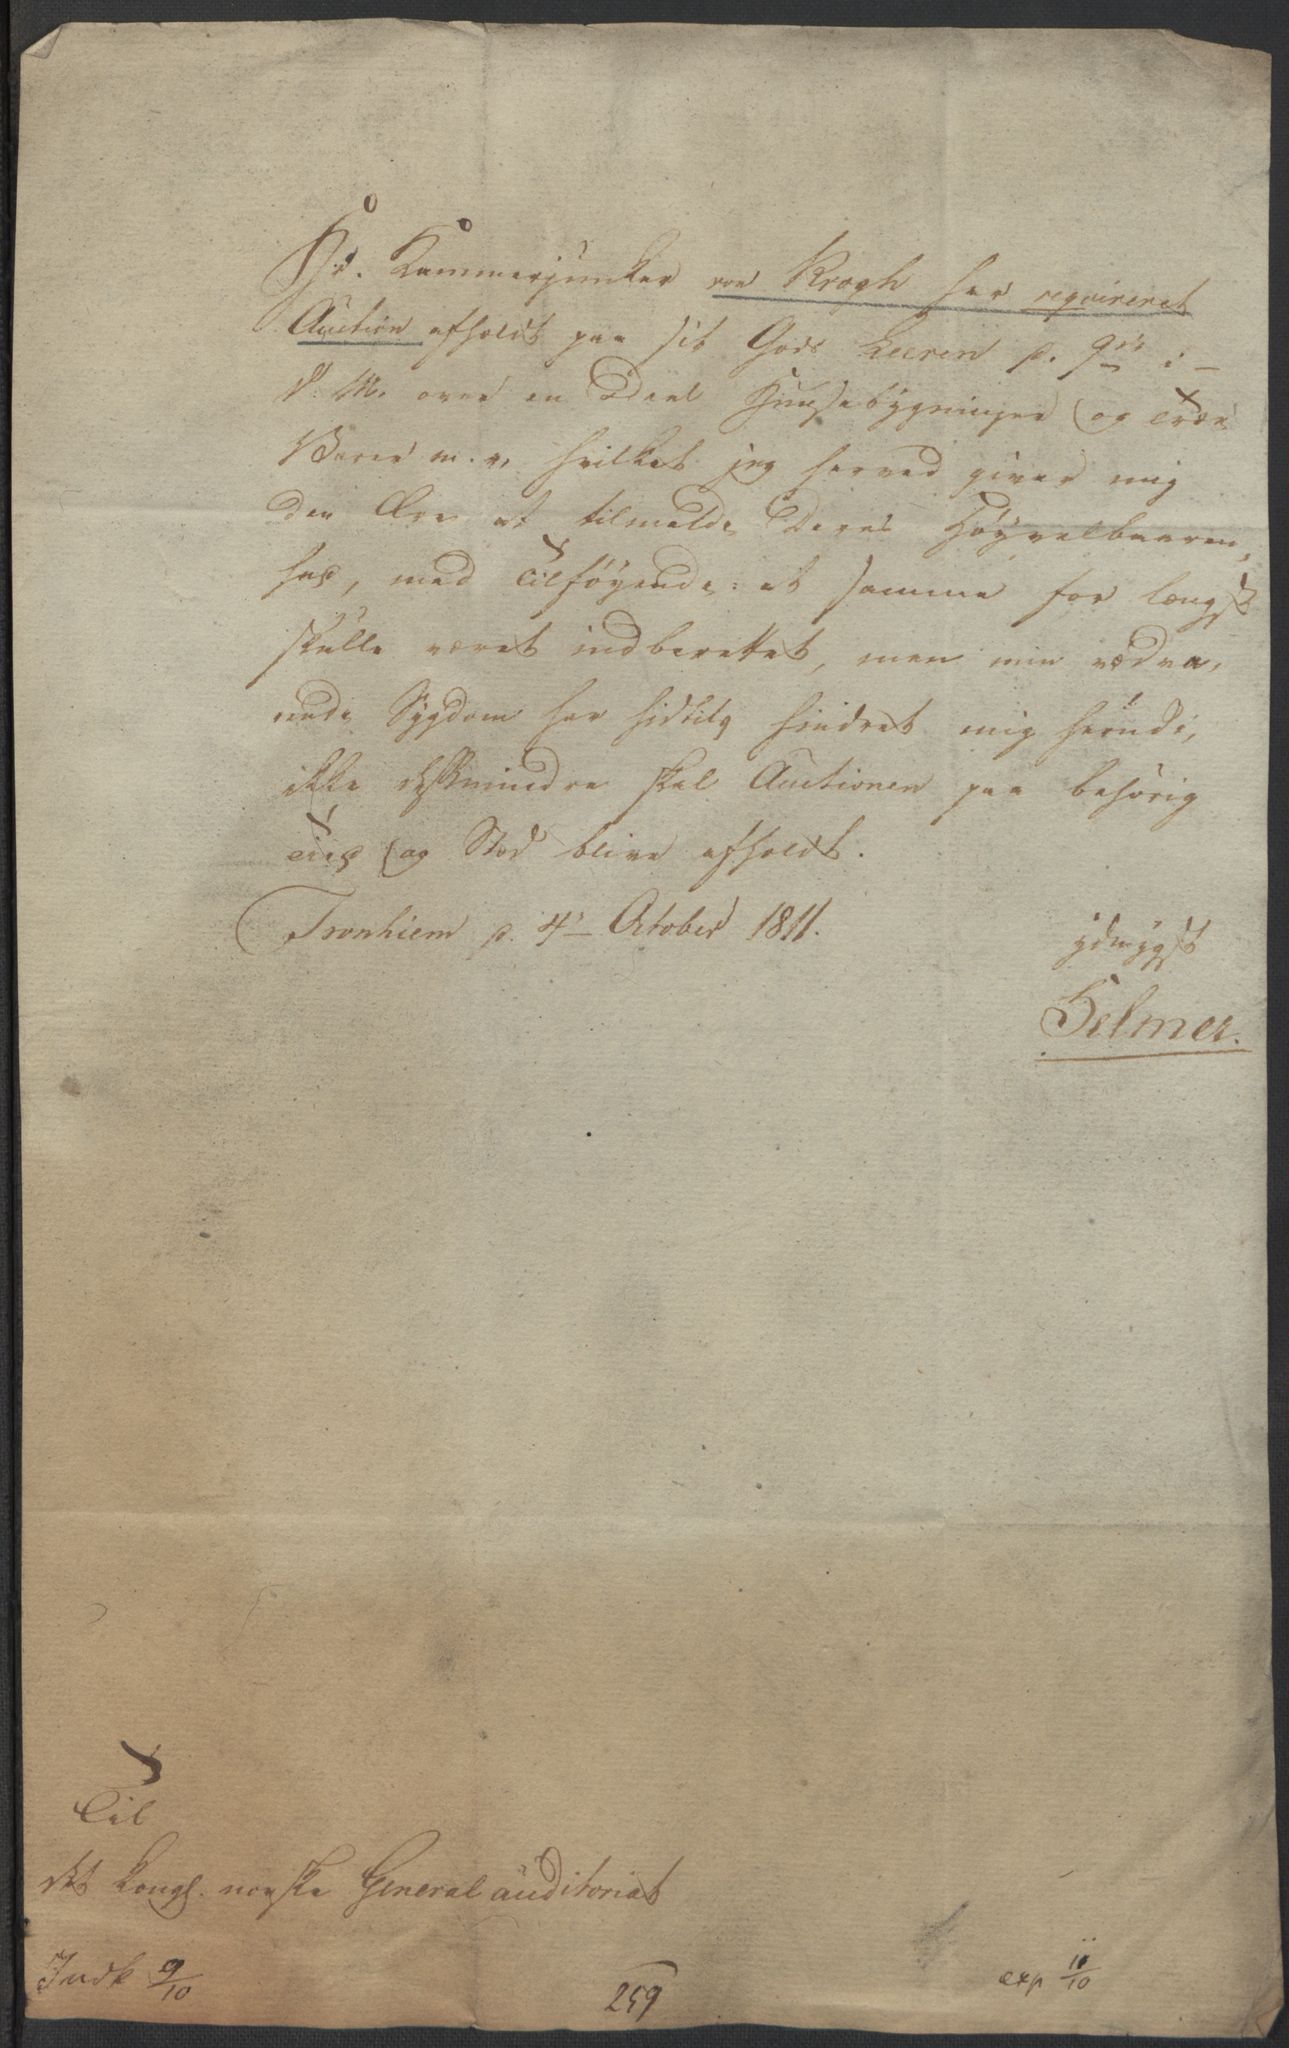 Hr. Kammerjunker von Krogh har requireret
Auction afholdt paa sit Gods Leeren p. 9de i
d. M. over en Deel Huusebygninger og Træe
Varer m. v. hvilket jeg herved giver mig
den Ære at tilmelde Deres Høyvelbaaren,
hed, med Tilføyende: at samme for længst
skulle været indberettet, men min vedva,
rende Sygdom har hidtil hindret mig herudi,
ikke dessmindre skal Auctionen paa behørig
Tiid og Sted blive afholdt.
Tronhiem p. 4 October 1811.
ydmygst
Selmer.
Til
det kongl. norske Generalauditoriat
Indk 9/10
259
exp 11/10